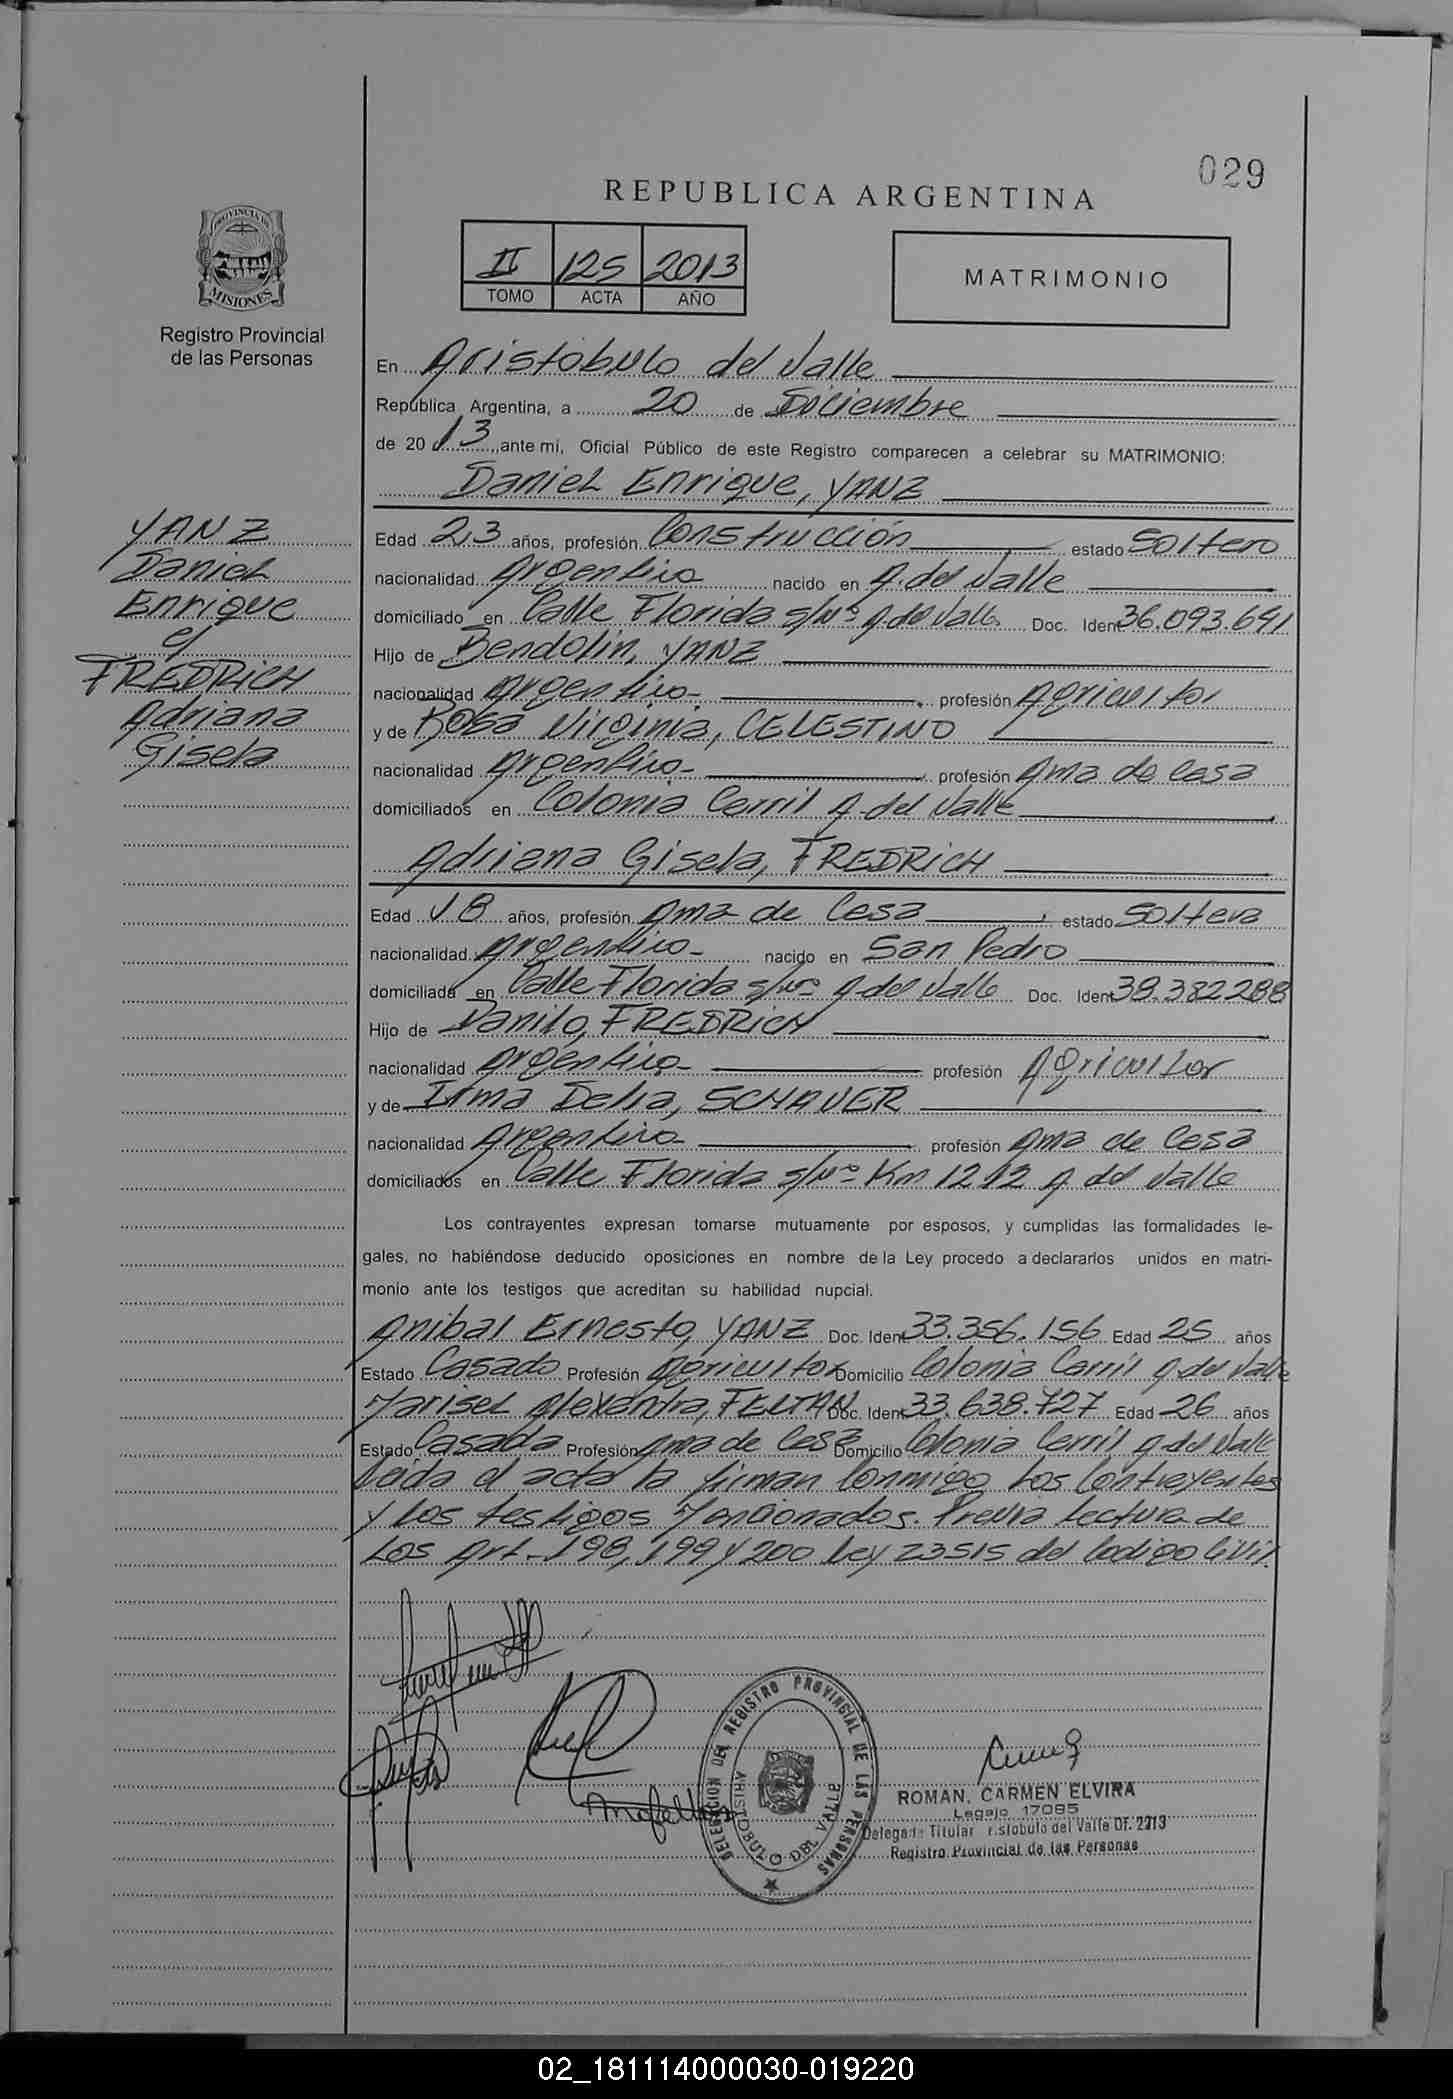 029
REPUBLICA ARGENTINA
II 125 2013
TOMO ACTA AÑO
MATRIMONIO
PROVINCIA DE
MISIONES
Registro Provincial
de las Personas
En Aristóbulo del Valle
República Argentina, a 20 de Diciembre
de 20 13 ante mí, Oficial Público de este Registro comparecen a celebrar su MATRIMONIO:
Daniel Enrique, YANZ
YANZ
Daniel
Enrique
c/
FREDRICH
Adriana
Gisela
Edad 23 años, profesión Construcción estado Soltero
nacionalidad Argentina nacido en A. del Valle
domiciliado en Calle Florida s/Nº A. del Valle Doc. Ident 36.093.641
Hijo de Bendolin, YANZ
nacionalidad Argentino profesión Agricultor
y de Rosa Virginia, CELESTINO
nacionalidad Argentina profesión Ama de Casa
domiciliados en Colonia Cerril A. del Valle
Adriana Gisela, FREDRICH
Edad 18 años, profesión Ama de Casa estado Soltera
nacionalidad Argentina nacido en San Pedro
domiciliada en Calle Florida s/Nº A. del Valle Doc. Ident 38.382288
Hijo de Danilo, FREDRICH
nacionalidad Argentino profesión Agricultor
y de Irma Delia, SCHAUER
nacionalidad Argentina profesión Ama de Casa
domiciliados en Calle Florida s/Nº Km 1212 A. del Valle
Los contrayentes expresan tomarse mutuamente por esposos, y cumplidas las formalidades le-
gales, no habiéndose deducido oposiciones en nombre de la Ley procedo a declararlos unidos en matri-
monio ante los testigos que acreditan su habilidad nupcial.
Anibal Ernesto, YANZ Doc. Ident 33.356.156 Edad 25 años
Estado Casado Profesión Agricultor Domicilio Colonia Cerril A. del Valle
Marisel Alexandra, FELTAN Doc. Ident 33.638.727 Edad 26 años
Estado Casada Profesión Ama de Casa Domicilio Colonia Cerril A. del Valle
Leida el acta la firman Conmigo Los Contrayentes
y Los testigos Mencionados. Previa Lectura de
Los Art. 198, 199 y 200 Ley 23515 del Codigo Civil.
DELEGACION DEL REGISTRO PROVINCIAL DE LAS PERSONAS
ARISTOBULO DEL VALLE
ROMAN, CARMEN ELVIRA
Legajo 17095
Delegada Titular Aristobulo del Valle Of. 2213
Registro Provincial de las Personas
02_181114000030-019220